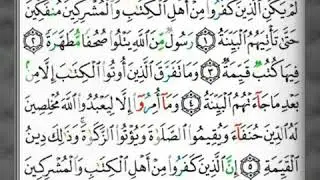 لَمْ يَكُنِ ٱلَّذِينَ كَفَرُوا۟ مِنْ أَهْلِ ٱلْكِتَٰبِ وَٱلْمُشْرِكِينَ مُنفَكِّينَ
حَتَّىٰ تَأْتِيَهُمُ ٱلْبَيِّنَةُ ١ رَسُولٌ مِّنَ ٱللَّهِ يَتْلُوا۟ صُحُفًا مُّطَهَّرَةً ٢
فِيهَا كُتُبٌ قَيِّمَةٌ ٣ وَمَا تَفَرَّقَ ٱلَّذِينَ أُوتُوا۟ ٱلْكِتَٰبَ إِلَّا مِنۢ
بَعْدِ مَا جَآءَتْهُمُ ٱلْبَيِّنَةُ ٤ وَمَآ أُمِرُوٓا۟ إِلَّا لِيَعْبُدُوا۟ ٱللَّهَ مُخْلِصِينَ
لَهُ ٱلدِّينَ حُنَفَآءَ وَيُقِيمُوا۟ ٱلصَّلَوٰةَ وَيُؤْتُوا۟ ٱلزَّكَوٰةَ ۚ وَذَٰلِكَ دِينُ
ٱلْقَيِّمَةِ ٥ إِنَّ ٱلَّذِينَ كَفَرُوا۟ مِنْ أَهْلِ ٱلْكِتَٰبِ وَٱلْمُشْرِكِينَ